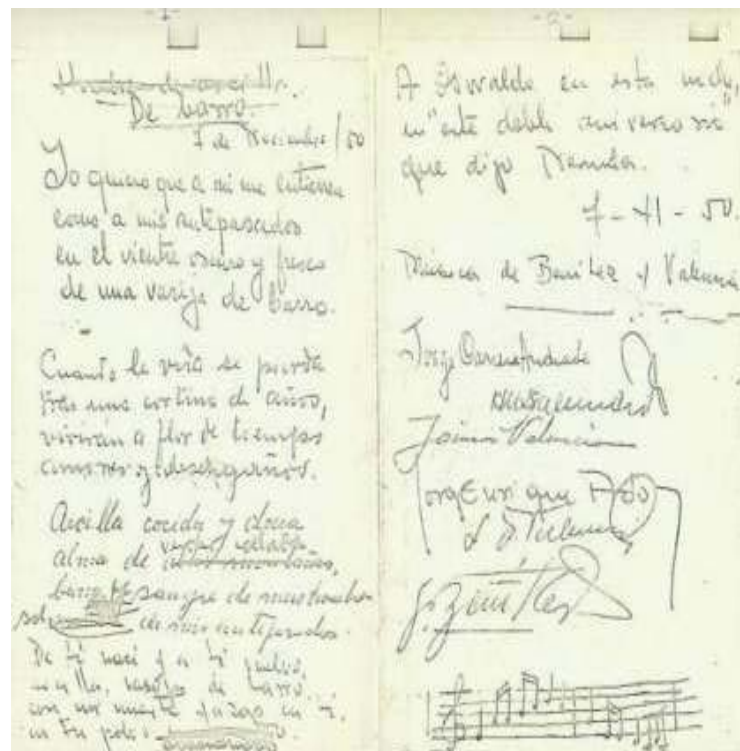 -1-
De barro.
7 de Noviembre/50
Yo quiero que a mi me entierren
como a mis antepasados
en el vientre oscuro y fresco
de una vasija de barro.
Cuando la vida se pierda
tras una cortina de años,
vivirán a flor de tiempo
amores y desengaños.
Arcilla cocida y dura
alma de
sangre de
sol de mis antepasados.
De ti nací y a ti vuelvo,
arcilla, vaso de barro.
con mi muerte yazgo en ti,
en tu polvo
-2-
A Oswaldo en esta noche,
en "este doble aniversario"
que dijo
7-XI-50.
de Benítez y Valencia
Jorge Carrera Andrade
Jaime Valencia
Jorge Enrique Adoum